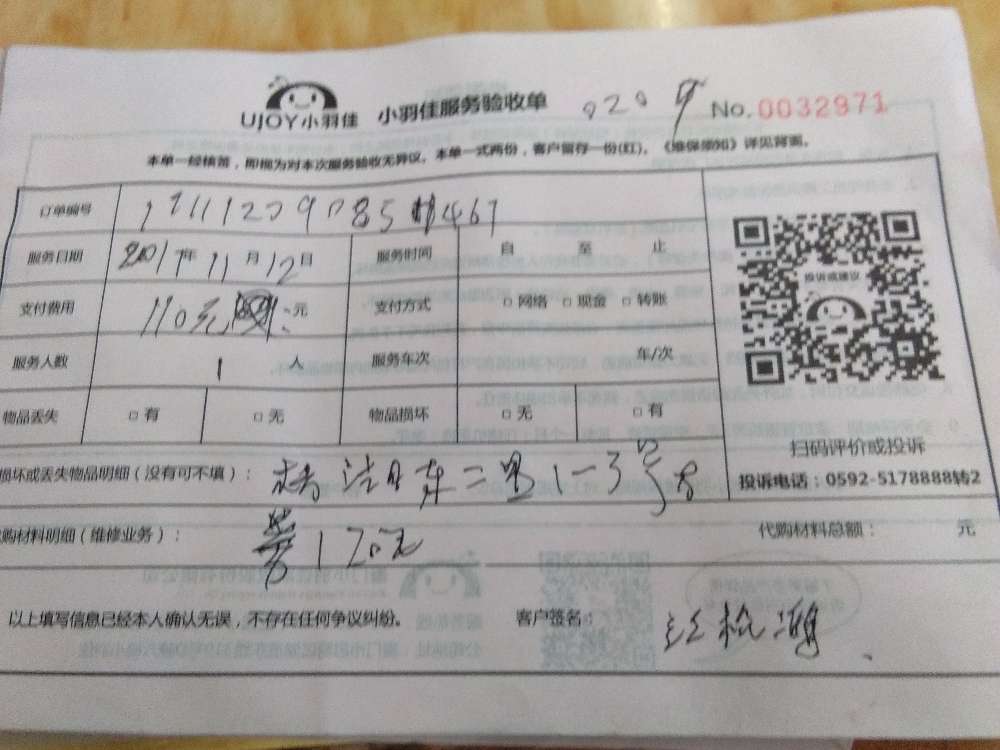 UJOY小羽佳 小羽佳服务验收单 0209 No.0032971
本单一经核签，即视为对本次服务验收无异议。本单一式两份，客户留存一份(红)。《维保须知》详见背面。
订单编号
服务日期 2017年11月12日 服务时间 自 至 止
投诉或建议
支付费用 110元 元 支付方式 □网络 □现金 □转账
服务人数 1 人 服务车次 车/次
物品丢失 □有 □无 物品损坏 □无 □有
扫码评价或投诉
投诉电话：0592-5178888转2
损坏或丢失物品明细（没有可不填）：
代购材料明细（维修业务）： 120元 代购材料总额： 元
以上填写信息已经本人确认无误，不存在任何争议纠纷。 客户签名：